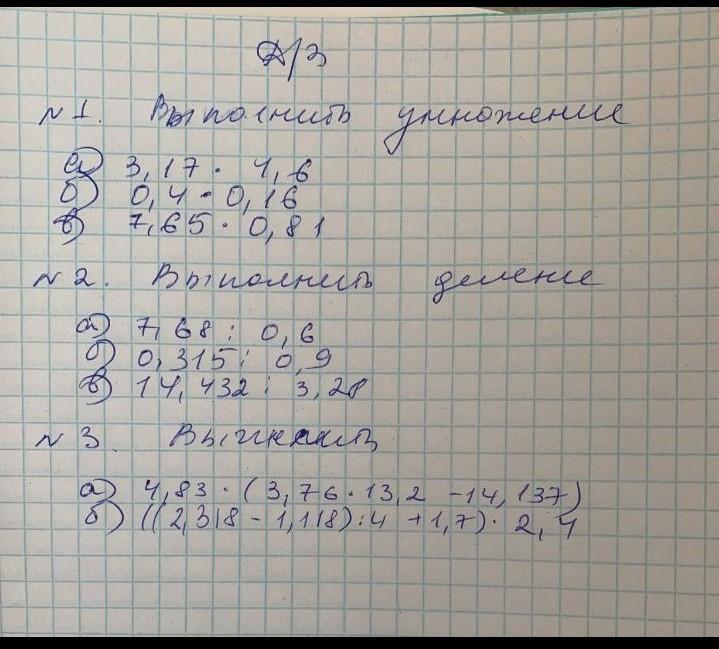 Д/З
№1. Выполнить умножение
а) 3,17 · 4,6
б) 0,4 · 0,16
в) 7,65 · 0,81
№2. Выполнить деление
а) 7,68 : 0,6
б) 0,315 : 0,9
в) 14,432 : 3,28
№3 Вычислить
а) 4,83 · (3,76 · 13,2 - 14,137)
б) ((2,318 - 1,118) : 4 + 1,7) · 2,4